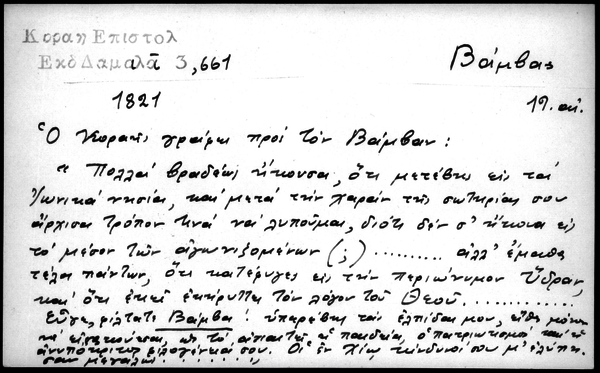 Κοραη Επιστολ
Εκδ Δαμαλᾶ 3,661
Βάμβας
1821
19. αἰ.
Ὁ Κοραῆς γράφει πρὸς τὸν Βάμβαν:
"Πολλὰ βραδέως ἤκουσα, ὅτι μετέβης εἰς τὰ
Ἰωνικὰ νησία, καὶ μετὰ τὴν χαρὰν τῆς σωτηρίας σου
ἄρχισα τρόπον τινὰ νὰ λυποῦμαι, διότι δὲν σ' ἤκουα εἰς
τὸ μέσον τῶν ἀγωνιζομένων (;) ......... ἀλλ' ἔμαθα
τέλος πάντων, ὅτι κατέφυγες εἰς τὴν περιώνυμον Ὕδραν,
καὶ ὅτι ἐκεῖ ἐκήρυττες τὸν λόγον τοῦ Θεοῦ. ............
Εὖγε, φίλτατε Βάμβα! ὑπερέβης τὰς ἐλπίδας μου, εἴθε μόνον
νὰ εἰρηνεύσας, ὡς τὸ ἀπαιτεῖ ἡ παιδεία, ὁ πατριωτισμὸς καὶ ἡ
ἀνυπόκριτος φιλογένειά σου. Οἱ ἐν Χίῳ κίνδυνοί σου μ' ἐλύπη-
σαν μεγάλως .......,,